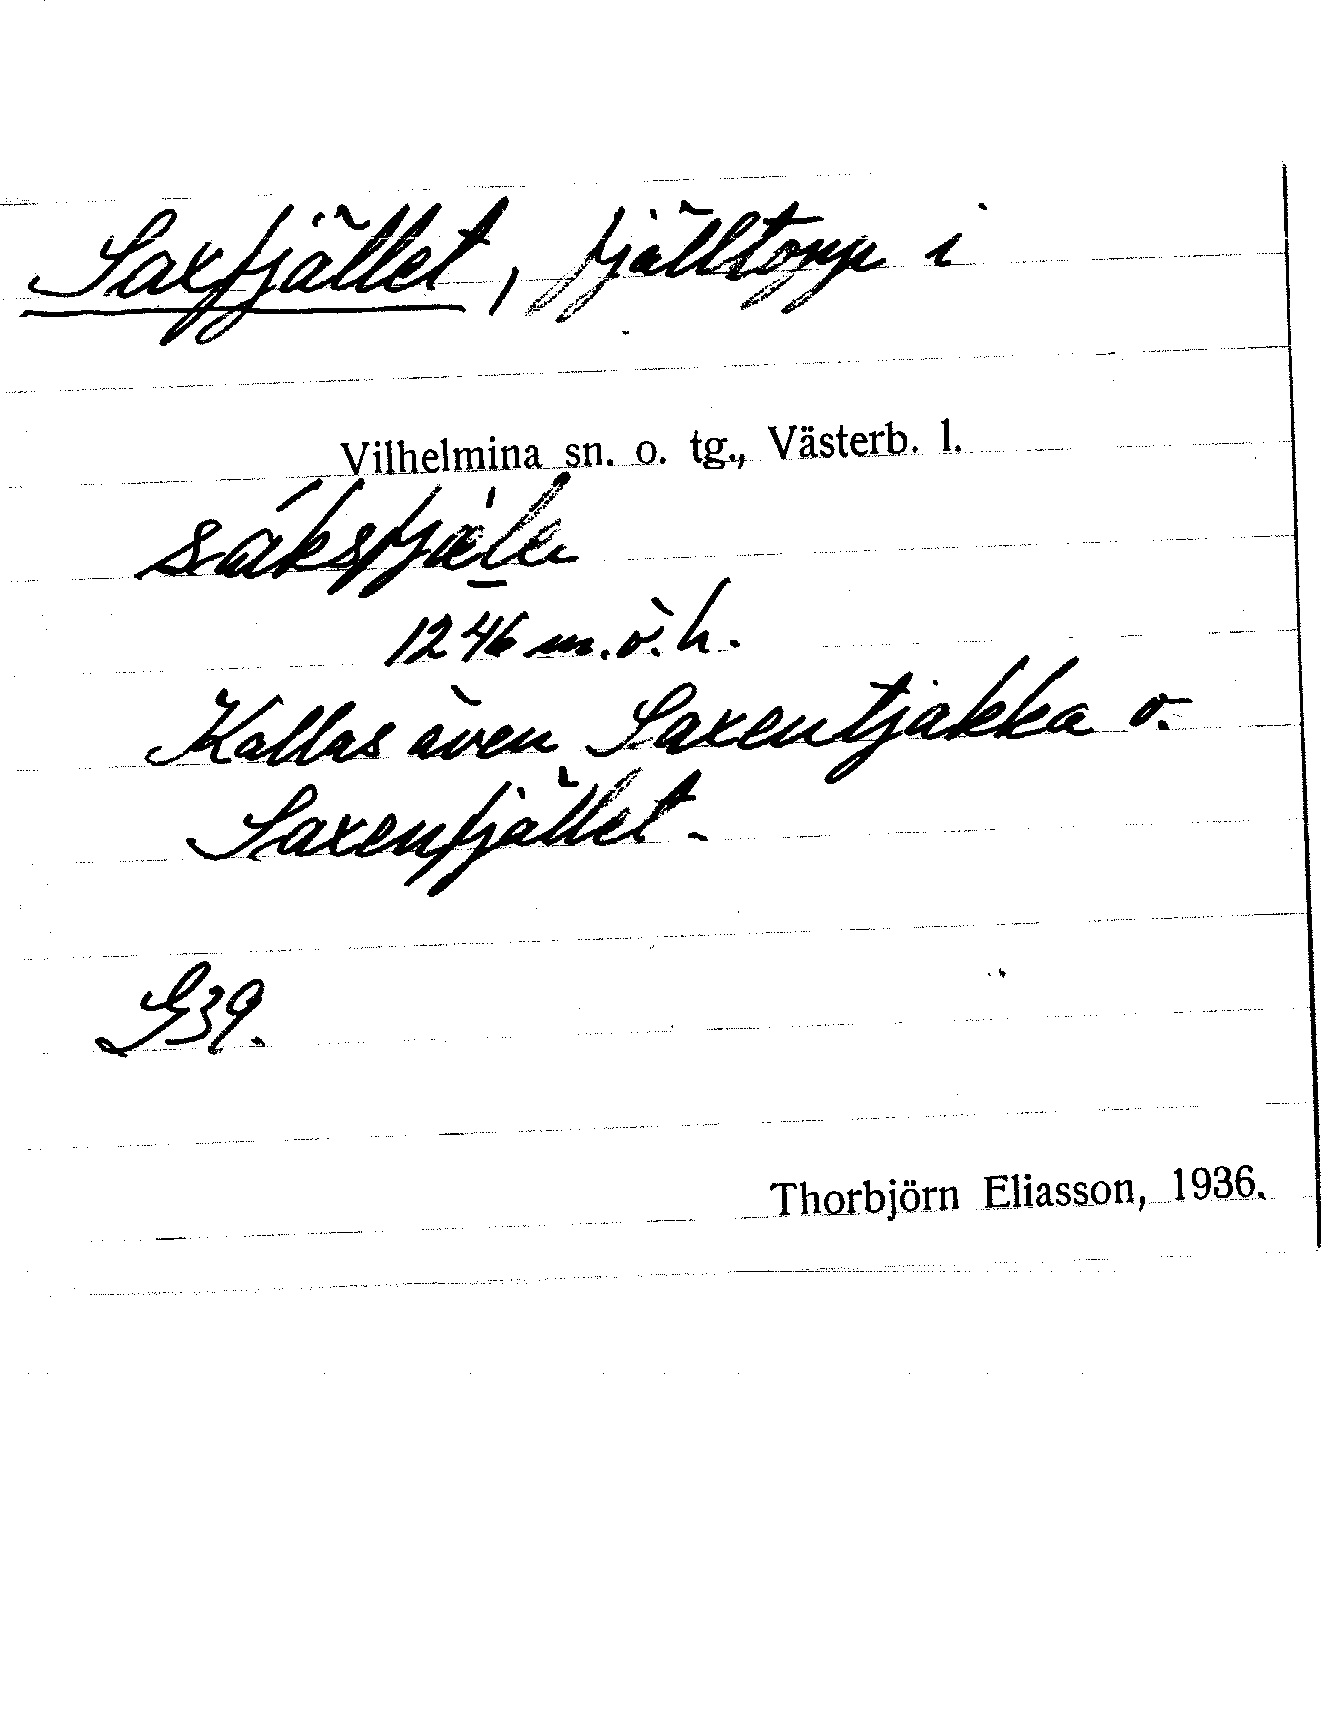 Saxfjället, fjälltopp i
Vilhelmina sn. o. tg., Västerb. l.
1246 m.ö.h.
Kallas även Saxentjakka o.
Saxenfjället.
G39.
Thorbjörn Eliasson, 1936.